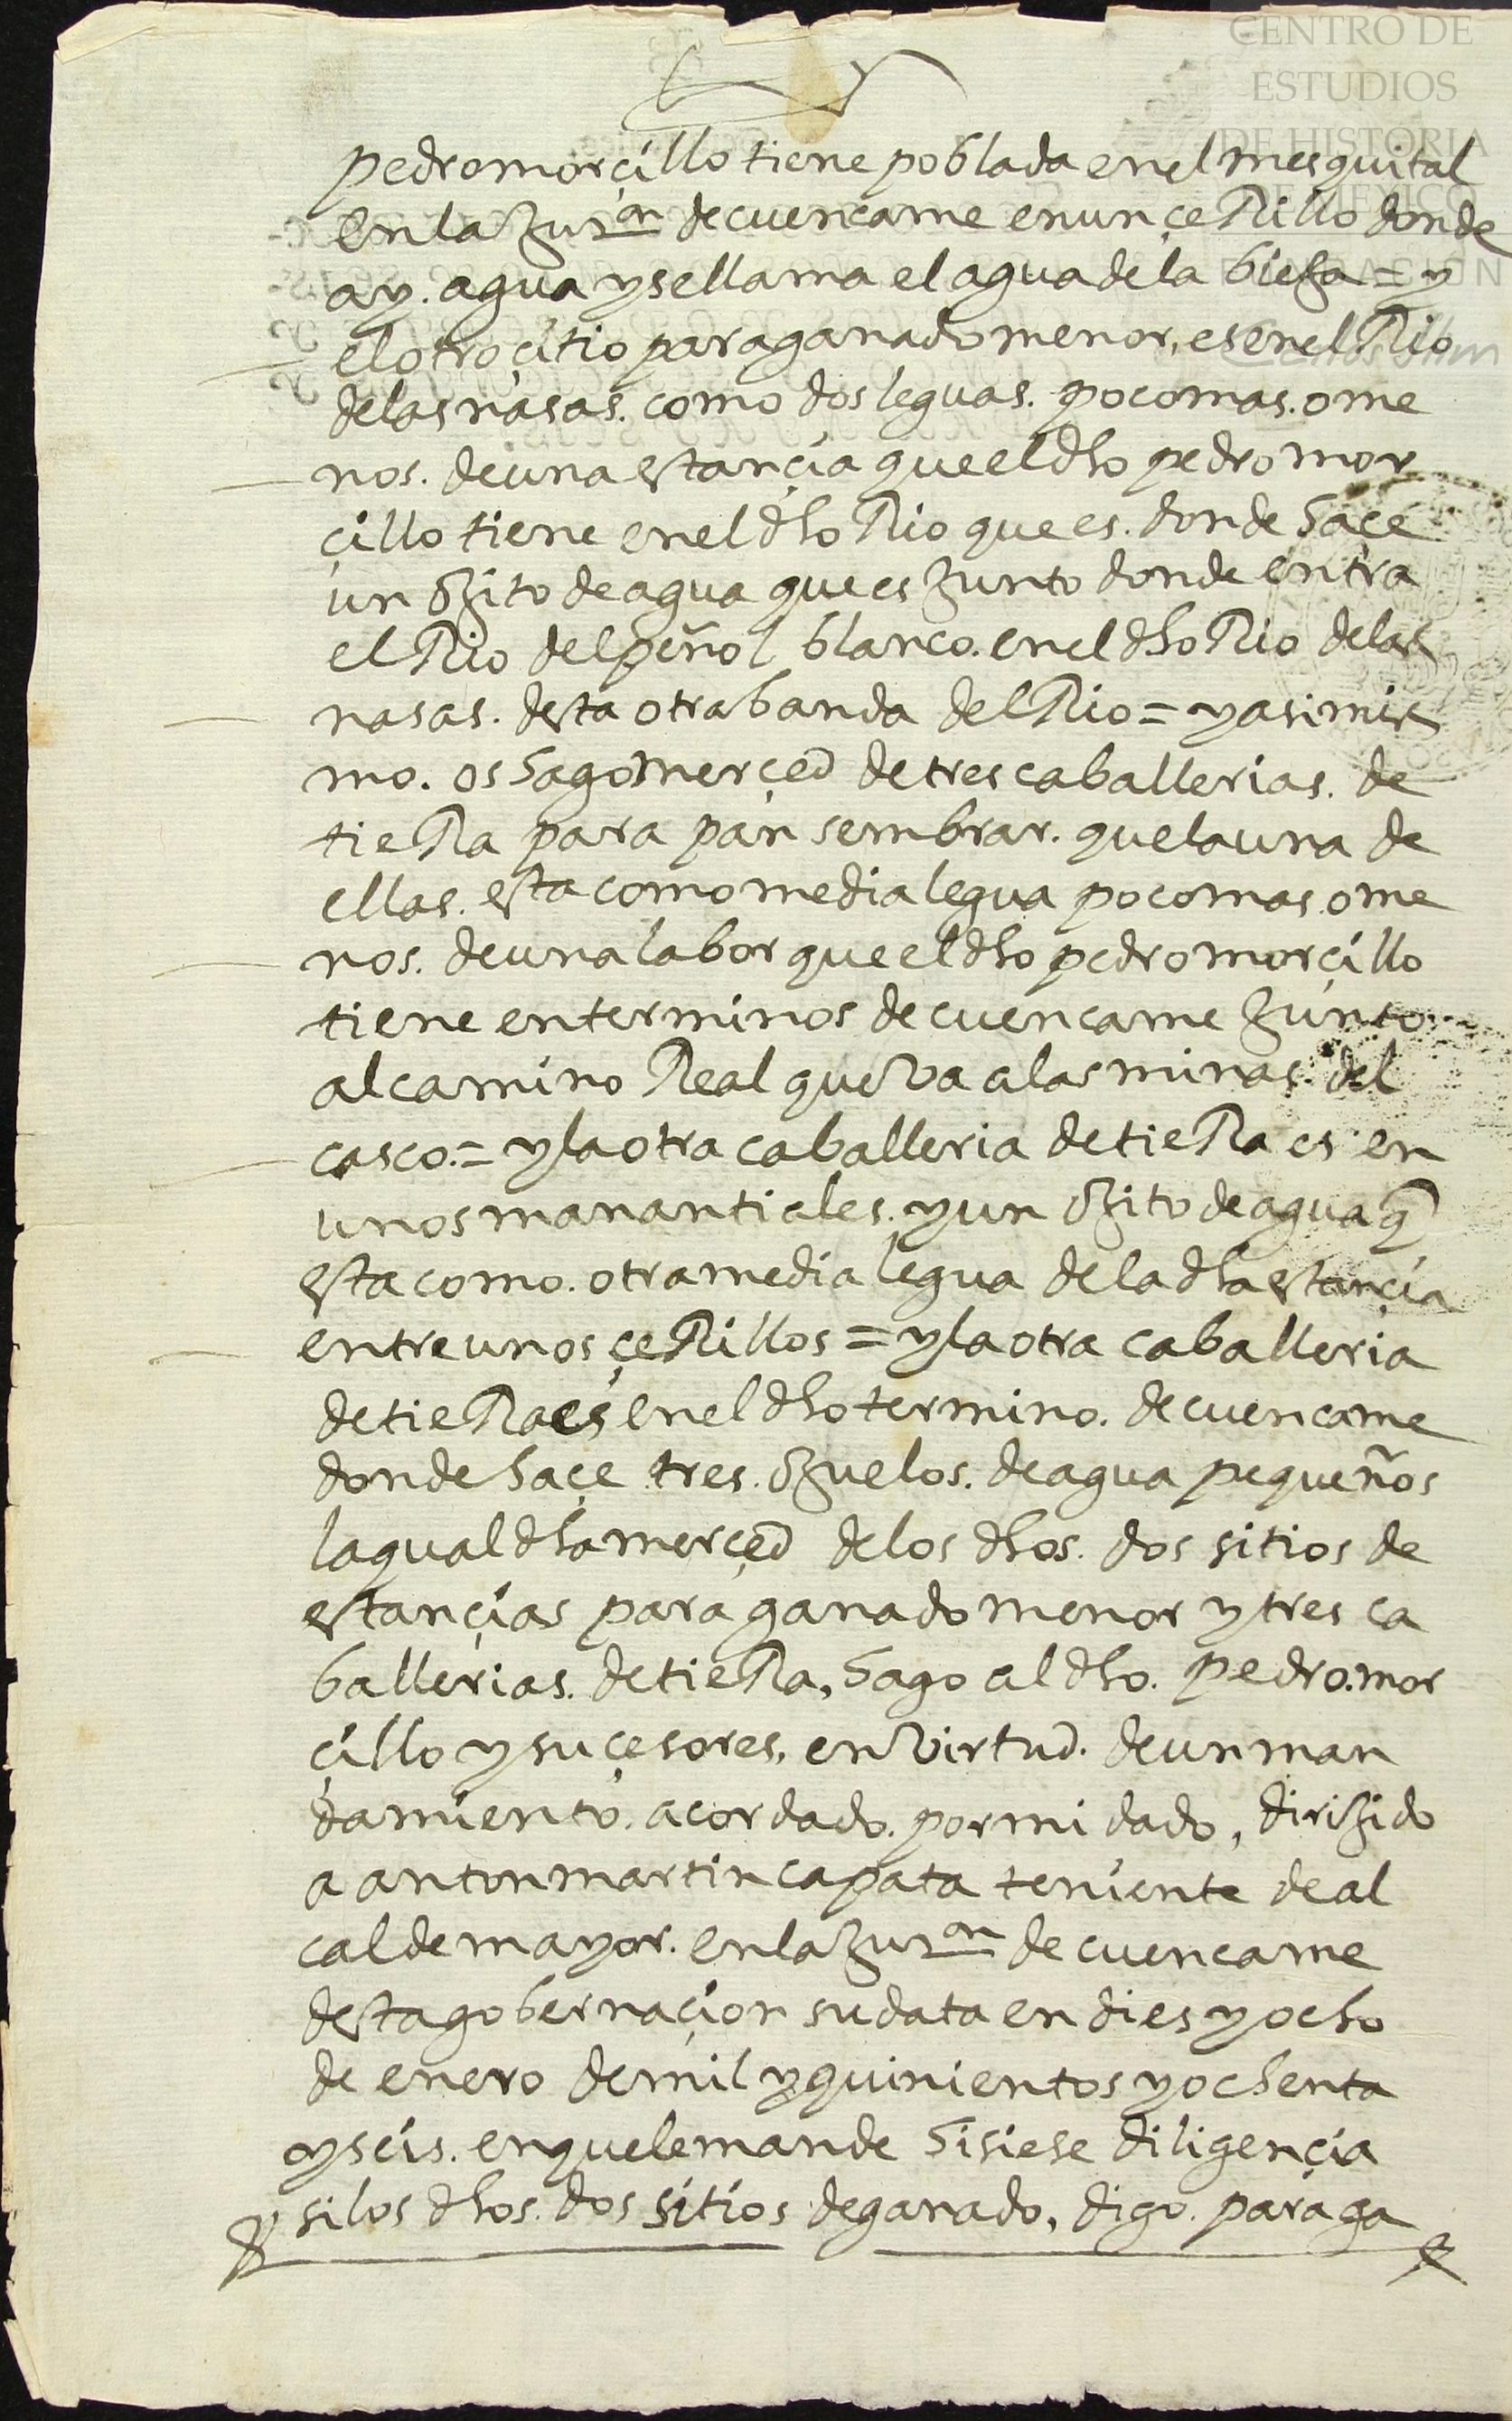 CENTRO DE
ESTUDIOS
DE HISTORIA
DE MEXICO
FUNDACION
pedro morçillo tiene poblada en el mesquital
en la Juron de cuencame en un çeRillo donde
ay. agua y se llama el agua de la bieja = y
el otro çitio para ganado menor, es en el Rio
de las nasas. como dos leguas. poco mas. o me
nos. de una estançia que el dho pedro mor
çillo tiene en el dho Rio que es. donde haçe
un ojito de agua que es Junto donde entra
el Rio del peñol blanco. en el dho Rio de las
nasas. desta otra banda del Rio = y asimis
mo. os hago merçed de tres caballerias. de
tieRa para pan sembrar. que la una de
ellas. esta como media legua poco mas. o me
nos. de una labor que el dho pedro morçillo
tiene en terminos de cuencame Junto
al camino Real que va a las minas. del
casco. = y la otra caballeria de tieRa es en
unos manantiales. y un ojito de agua q
esta como. otra media legua de la dha estançia
entre unos çeRillos = y la otra caballeria
de tieRa es en el dho termino. de cuencame
donde haçe tres. ojuelos. de agua pequeños
la qual dha merçed de los dhos. dos sitios de
estançias para ganado menor y tres ca
ballerias. de tieRa, hago al dho. pedro. mor
çillo y suçesores, en virtud. de un man
damiento. acordado. por mi dado, dirijido
a anton martin capata teniente de al
calde mayor. en la Juron de cuencame
desta gobernaçion su data en dies y ocho
de enero de mil y quinientos y ochenta
y seis. en que le mande hisiese diligençia
si los dhos. dos sitios de ganado, digo. para ga